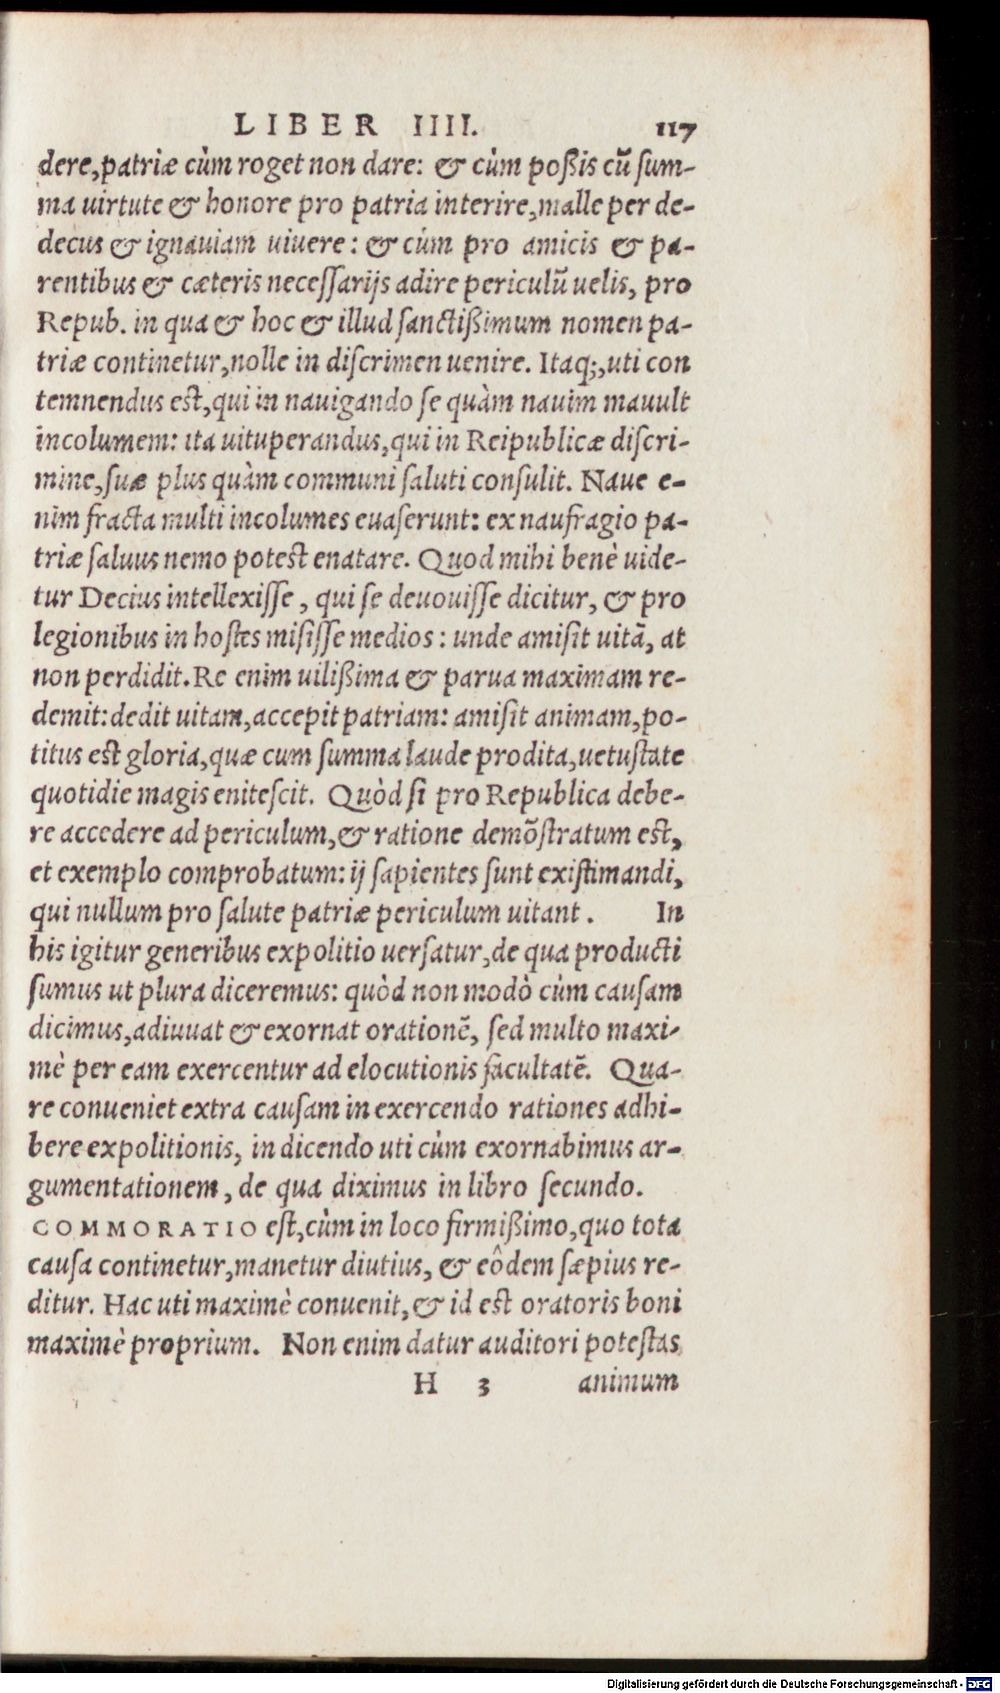 LIBER IIII. 117
dere, patriæ cùm roget non dare: & cùm poßis cū ſum-
ma uirtute & honore pro patria interire, malle per de-
decus & ignauiam uiuere: & cùm pro amicis & pa-
rentibus & cæteris neceſſarijs adire periculū uelis, pro
Repub. in qua & hoc & illud ſanctißimum nomen pa-
triæ continetur, nolle in diſcrimen uenire. Itaq;, uti con
temnendus est, qui in nauigando ſe quàm nauim mauult
incolumem: ita uituperandus, qui in Reipublicæ diſcri-
mine, ſuæ plus quàm communi ſaluti conſulit. Naue e-
nim fracta multi incolumes euaſerunt: ex naufragio pa-
triæ ſaluus nemo potest enatare. Quod mihi benè uide-
tur Decius intellexiſſe, qui ſe deuouiſſe dicitur, & pro
legionibus in hoſtes miſiſſe medios: unde amiſit uitā, at
non perdidit. Re enim uilißima & parua maximam re-
demit: dedit uitam, accepit patriam: amiſit animam, po-
titus est gloria, quæ cum ſumma laude prodita, uetuſtate
quotidie magis eniteſcit. Quòd ſi pro Republica debe-
re accedere ad periculum, & ratione demōſtratum est,
et exemplo comprobatum: ij ſapientes ſunt exiſtimandi,
qui nullum pro ſalute patriæ periculum uitant. In
his igitur generibus expolitio uerſatur, de qua producti
ſumus ut plura diceremus: quòd non modò cùm cauſam
dicimus, adiuuat & exornat orationē, ſed multo maxi-
mè per eam exercentur ad elocutionis facultatē. Qua-
re conueniet extra cauſam in exercendo rationes adhi-
bere expolitionis, in dicendo uti cùm exornabimus ar-
gumentationem, de qua diximus in libro ſecundo.
COMMORATIO est, cùm in loco firmißimo, quo tota
cauſa continetur, manetur diutius, & eôdem ſæpius re-
ditur. Hac uti maximè conuenit, & id est oratoris boni
maximè proprium. Non enim datur auditori poteſtas
H 3 animum
Digitalisierung gefördert durch die Deutsche Forschungsgemeinschaft - DFG